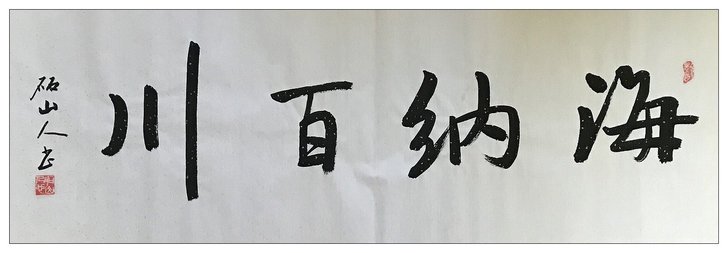 海纳百川
砳山人书